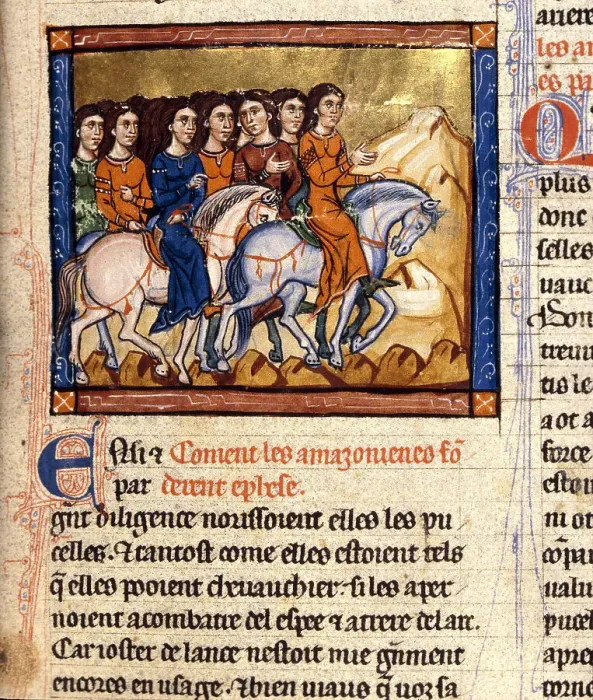 Ensi ⁊ Coment les amazonienes fō
par derent ephese.
gñt diligence norissoient elles les pu
celles. ⁊ tantost come elles estoient tels
q̄ elles pooient chevauchier. si les aper
noient a combatre del espee ⁊ a trere del arc.
Car ioster de lance nestoit mie gñment
encores en usage. ⁊ bien uiaus q̄ uoz sa
ariere
les am
es pa
plus
donc
selles
uauc
tis le
a ot a
force
estoi
ni ot
cōpai
ualu
pucel
apre
torne